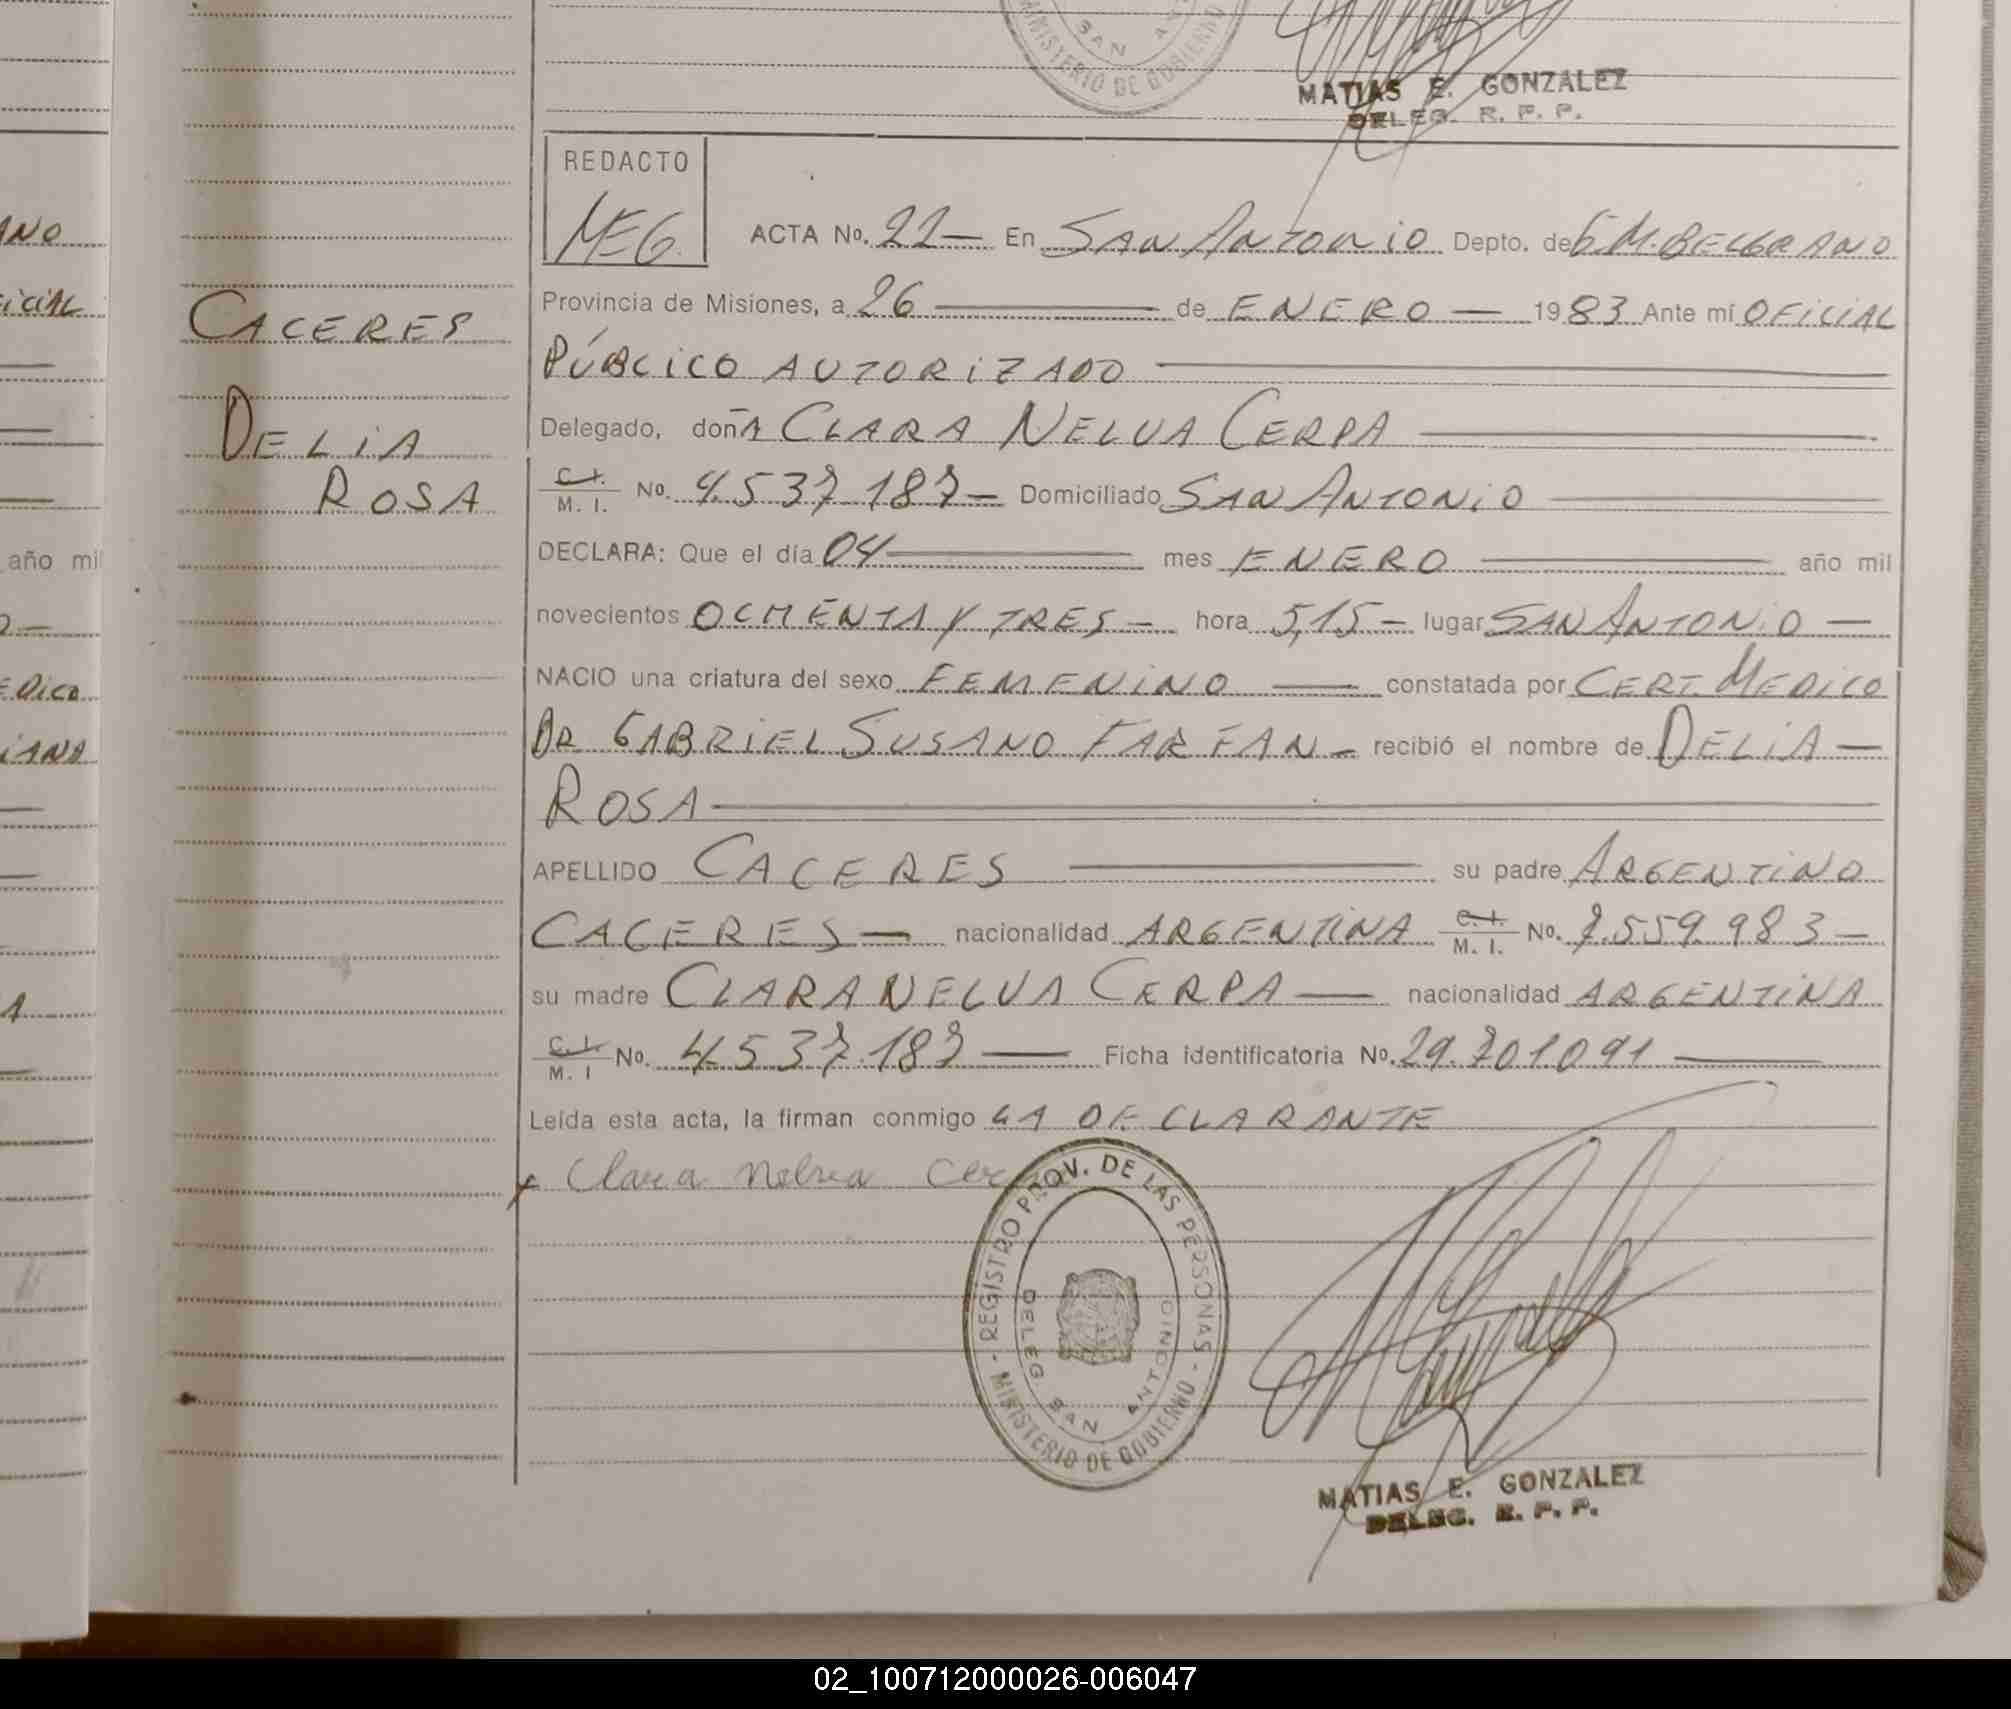 SAN A
MINISTERIO DE GOBIERNO
MATIAS E. GONZALEZ
DELEG. R. P. P.
REDACTO
MEG.
ACTA No. 22 — En SAN ANTONIO Depto. de G. M. BELGRANO
Provincia de Misiones, a 26 — de ENERO — 1983 Ante mí OFICIAL
PÚBLICO AUTORIZADO —
Delegado, doñA CLARA NELVA CERPA —
C.I. M. I. No. 4.537.187 — Domiciliado SAN ANTONIO —
DECLARA: Que el día 04 — mes ENERO — año mil
novecientos OCHENTA Y TRES — hora 5,15 — lugar SAN ANTONIO —
NACIO una criatura del sexo FEMENINO — constatada por CERT. MEDICO
DR GABRIEL SUSANO FARFAN — recibió el nombre de DELIA —
ROSA —
APELLIDO CACERES — su padre ARGENTINO
CACERES — nacionalidad ARGENTINA C.I. M. I. No. 7.559.983 —
su madre CLARA NELVA CERPA — nacionalidad ARGENTINA
C.I. M. I No. 4.537.187 — Ficha identificatoria No. 29.701.091 —
Leída esta acta, la firman conmigo LA DECLARANTE
x Clara Nelva Cer
REGISTRO PROV. DE LAS PERSONAS - MINISTERIO DE GOBIERNO -
DELEG. SAN ANTONIO
MATIAS E. GONZALEZ
DELEG. R. P. P.
CACERES
DELIA
ROSA
ANO
ICIAL
año mil
EDICO
IANA
A
02_100712000026-006047